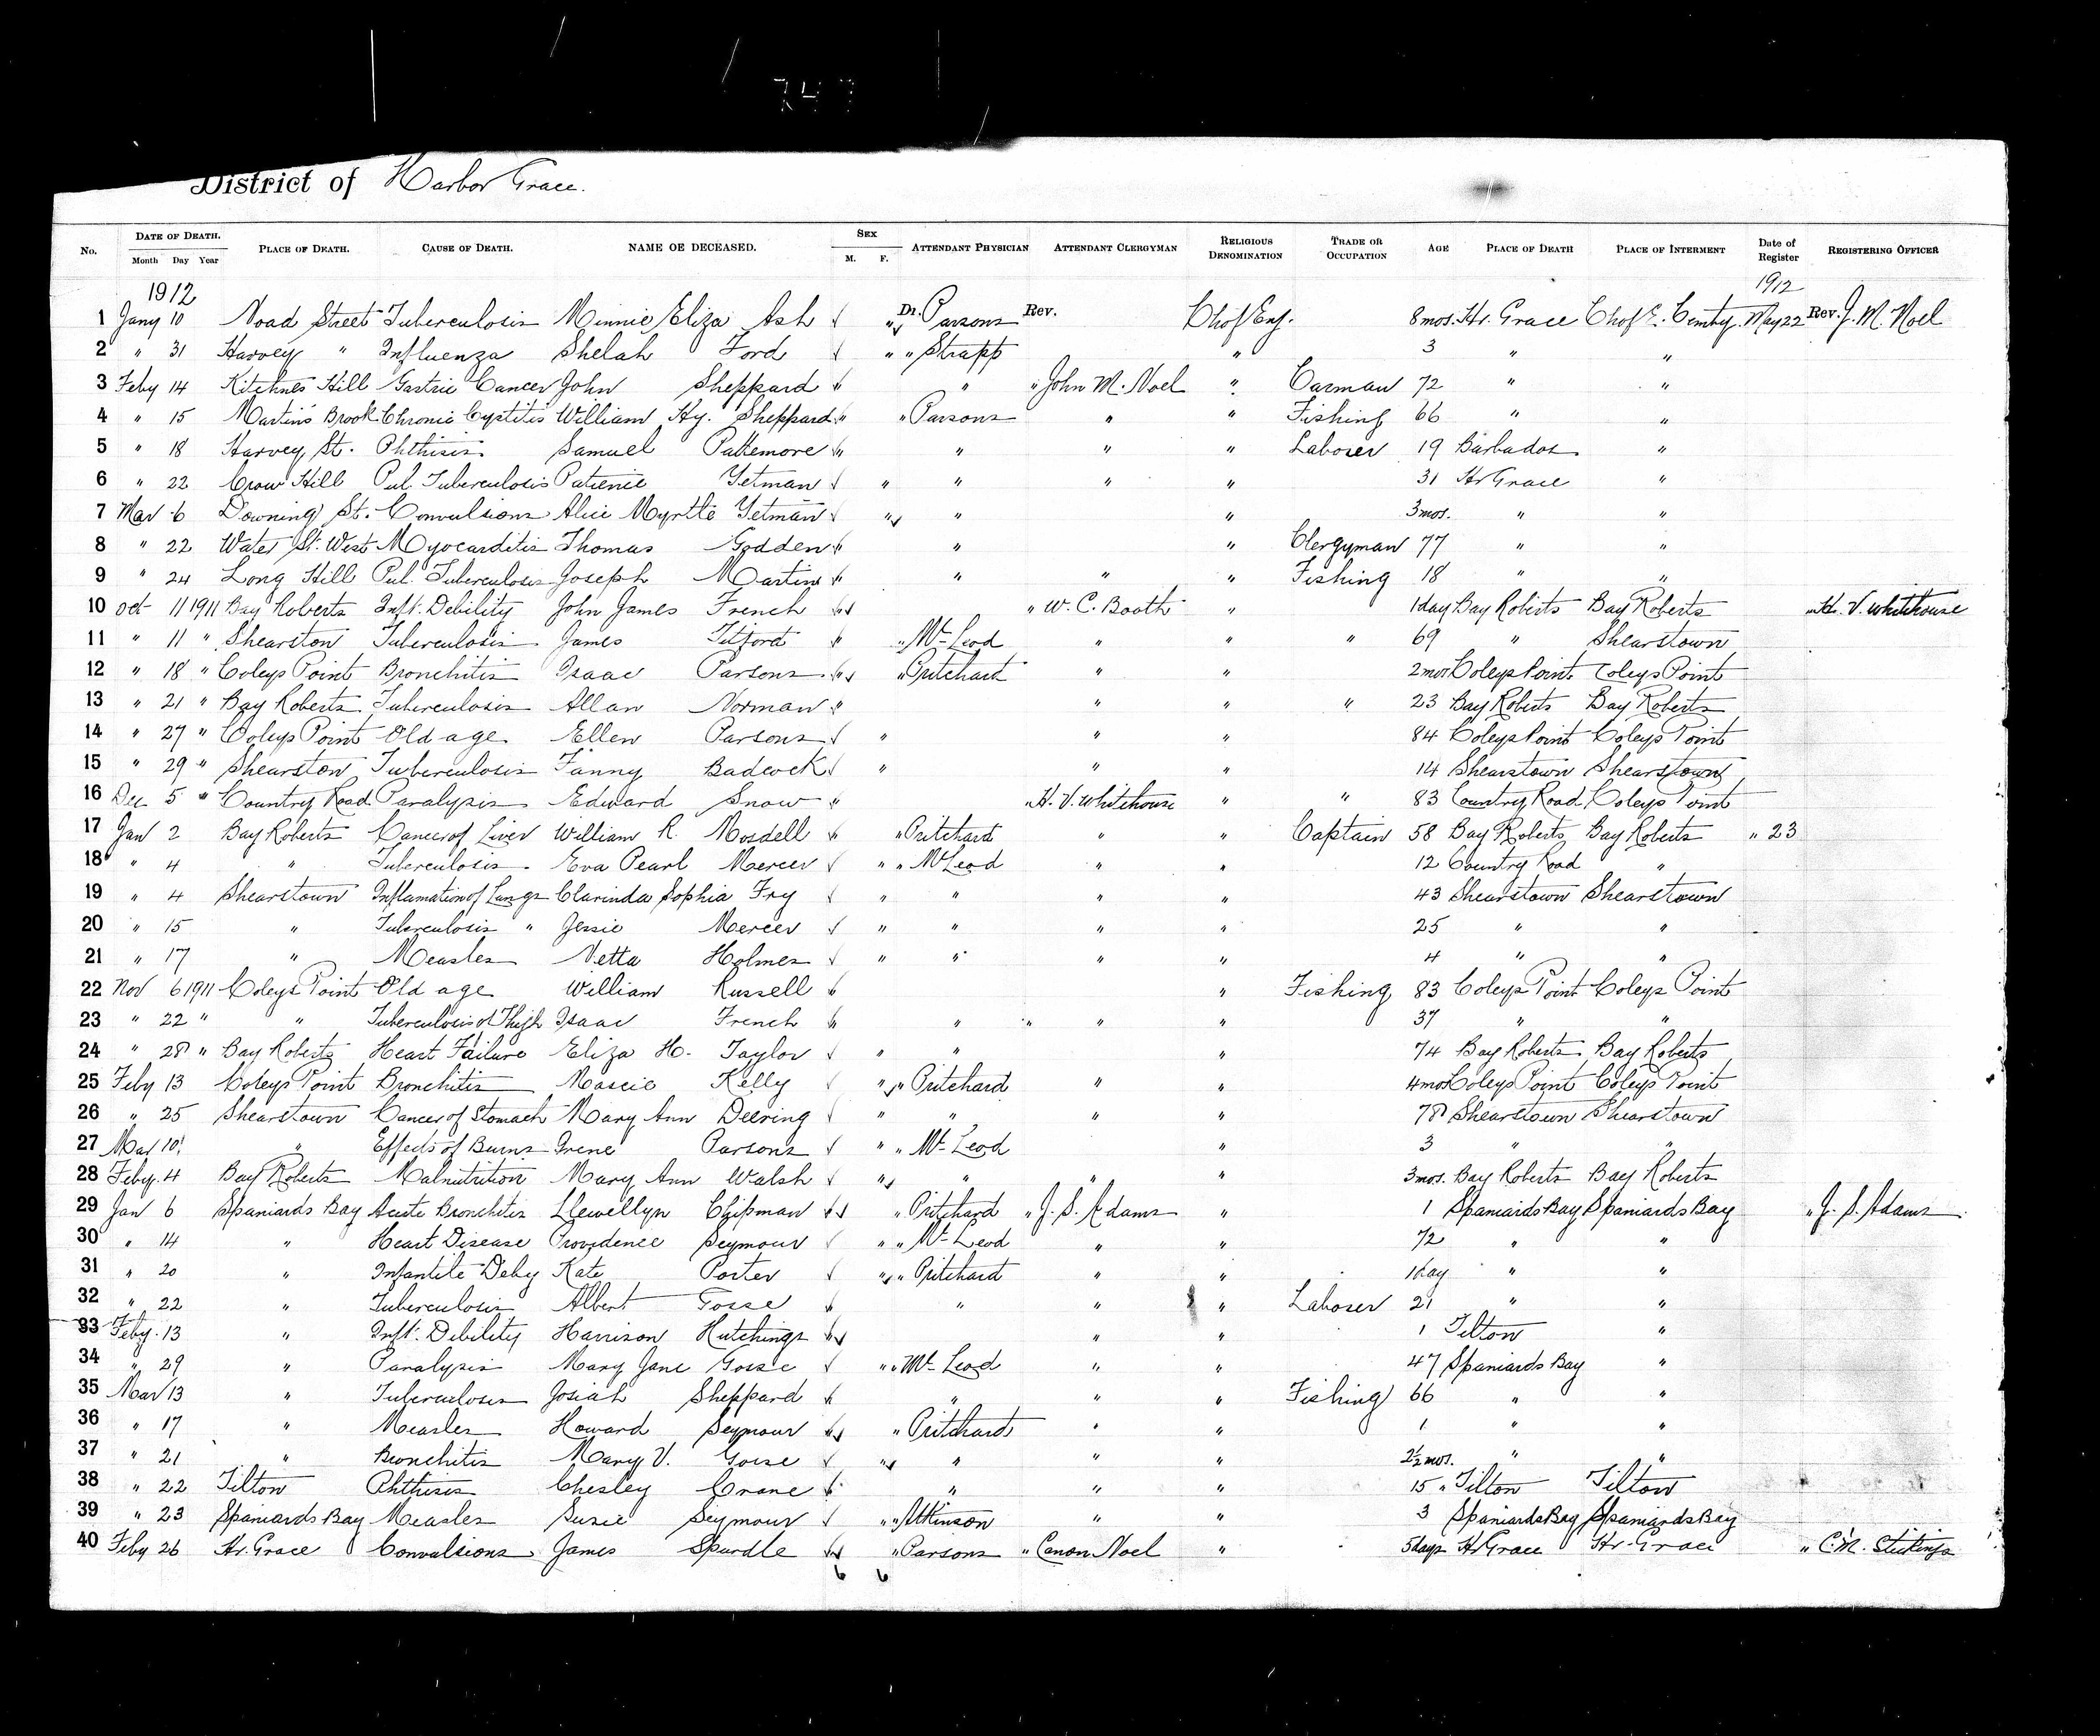 District of Harbor Grace.
No. DATE OF DEATH. Month Day Year PLACE OF DEATH. CAUSE OF DEATH. NAME OF DECEASED. SEX M. F. ATTENDANT PHYSICIAN ATTENDANT CLERGYMAN RELIGIOUS DENOMINATION TRADE OR OCCUPATION AGE PLACE OF DEATH PLACE OF INTERMENT Date of Register REGISTERING OFFICER
1912 1912
1 Jany 10 Noad Street Tuberculosis Minnie Eliza Ash " Dr. Parsons Rev. Ch of Eng. 8 mos. Hr. Grace Ch of E. Cemtry. May 22 Rev. J. M. Noel
2 " 31 Harvey " Influenza Shelah Ford " " Strapp " 3 " "
3 Feby 14 Kitchnes Hill Gastric Cancer John Sheppard " " " John M. Noel " Carman 72 " "
4 " 15 Martin's Brook Chronic Cystitis William Hy. Sheppard " " Parsons " " Fishing 66 " "
5 " 18 Harvey St. Phthisis Samuel Pattemore " " " " Laborer 19 Barbados "
6 " 22 Crow Hill Pul. Tuberculosis Patience Yetman " " " " 31 Hr Grace "
7 Mar 6 Downing St. Convulsions Alice Myrtle Yetman " " " 3 mos. " "
8 " 22 Water St. West Myocarditis Thomas Godden " " " Clergyman 77 " "
9 " 24 Long Hill Pul. Tuberculosis Joseph Martin " " " " Fishing 18 " "
10 Oct 11 1911 Bay Roberts Inft. Debility John James French " " W. C. Booth " 1 day Bay Roberts Bay Roberts " H. V. Whitehouse
11 " 11 " Shearston Tuberculosis James Titford " " McLeod " " " 69 " Shearstown
12 " 18 " Coleys Point Bronchitis Isaac Parsons " " Pritchard " " 2 mos Coleys Point Coleys Point
13 " 21 " Bay Roberts Tuberculosis Allan Norman " " " " 23 Bay Roberts Bay Roberts
14 " 27 " Coleys Point Old age Ellen Parsons " " " 84 Coleys Point Coleys Point
15 " 29 " Shearston Tuberculosis Fanny Badcock " " " 14 Shearstown Shearstown
16 Dec 5 " Country Road Paralysis Edward Snow " " H. V. Whitehouse " " 83 Country Road Coleys Point
17 Jan 2 Bay Roberts Cancer of Liver William R. Mosdell " " Pritchard " " Captain 58 Bay Roberts Bay Roberts " 23
18 " 4 " Tuberculosis Eva Pearl Mercer " " McLeod " " 12 Country Road "
19 " 4 Shearstown Inflamation of Lungs Clarinda Sophia Fry " " " " 43 Shearstown Shearstown
20 " 15 " Tuberculosis " Jessie Mercer " " " " 25 " "
21 " 17 " Measles Netta Holmes " " " " 4 " "
22 Nov 6 1911 Coleys Point Old age William Russell " " Fishing 83 Coleys Point Coleys Point
23 " 22 " " Tuberculosis of Thigh Isaac French " " " " " 37 " "
24 " 28 " Bay Roberts Heart Failure Eliza H. Taylor " " " 74 Bay Roberts Bay Roberts
25 Feby 13 Coleys Point Bronchitis Kelly " " Pritchard " " 4 mos Coleys Point Coleys Point
26 " 25 Shearstown Cancer of Stomach Mary Ann Deering " " " " 78 Shearstown Shearstown
27 Mar 10 " Effects of Burns Irene Parsons " " McLeod " 3 " "
28 Feby. 4 Bay Roberts Malnutrition Mary Ann Walsh " " " " 3 mos. Bay Roberts Bay Roberts
29 Jan 6 Spaniards Bay Acute Bronchitis Llewellyn Chipman " " Pritchard " J. S. Adams " 1 Spaniards Bay Spaniards Bay " J. S. Adams
30 " 14 " Heart Disease Providence Seymour " " McLeod " " 72 " "
31 " 20 " Infantile Deby Kate Porter " " Pritchard " " 1 day " "
32 " 22 " Tuberculosis Albert Gosse " " " " Laborer 21 " "
33 Feby. 13 " Inft. Debility Harrison Hutchings " " " 1 Tilton "
34 " 29 " Paralysis Mary Jane Gosse " " McLeod " " 47 Spaniards Bay "
35 Mar 13 " Tuberculosis Josiah Sheppard " " " " Fishing 66 " "
36 " 17 " Measles Howard Seymour " " Pritchard " " 1 " "
37 " 21 " Bronchitis Mary V. Gosse " " " " 2½ mos. " "
38 " 22 Tilton Phthisis Chesley Crane " " " " 15 " Tilton Tilton
39 " 23 Spaniards Bay Measles Susie Seymour " " Atkinson " " 3 Spaniards Bay Spaniards Bay
40 Feby 26 Hr. Grace Convulsions James Spurdle " " Parsons " Canon Noel " 5 days Hr Grace Hr. Grace " C. M. Stickings
6 6